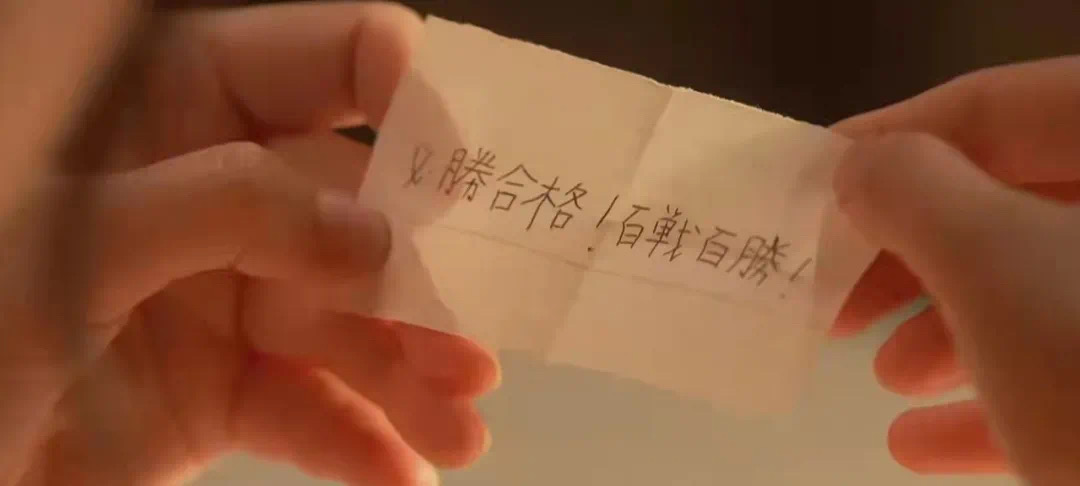 必勝合格!百戦百勝!